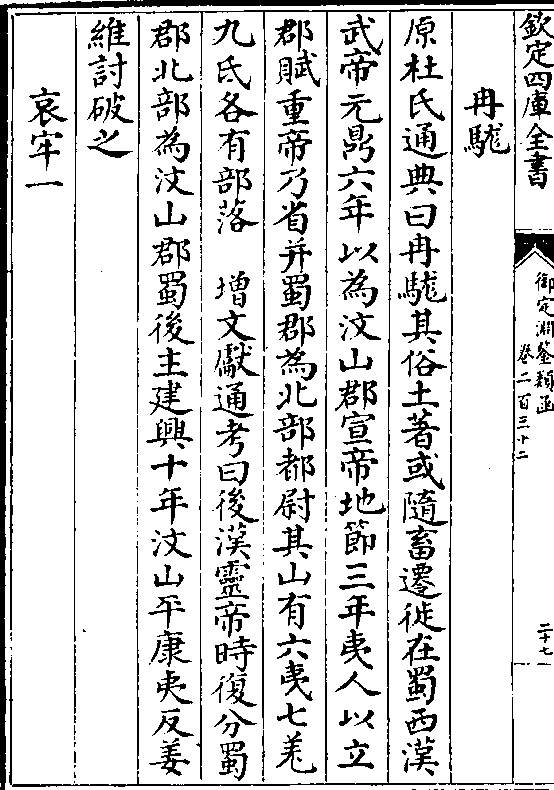 欽定四庫全書
御定淵鑒類函
卷二百三十二
二十七
冉駹
原杜氏通典曰冉駹其俗土著或隨畜遷徙在蜀西漢
武帝元鼎六年以為汶山郡宣帝地節三年夷人以立
郡賦重帝乃省并蜀郡為北部都尉其山有六夷七羌
九氐各有部落　增文獻通考曰後漢靈帝時復分蜀
郡北部為汶山郡蜀後主建興十年汶山平康夷反姜
維討破之
哀牢一